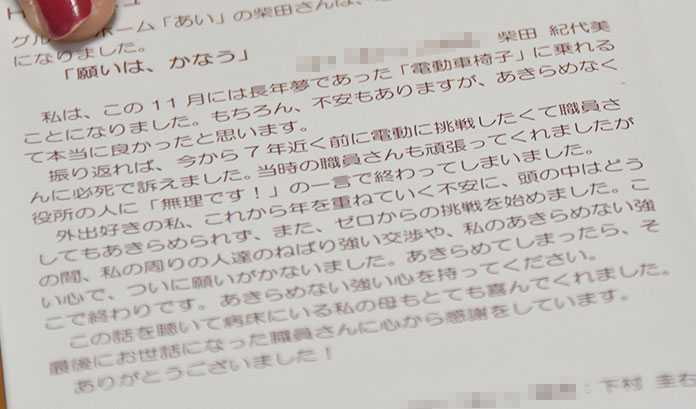 グループホーム「あい」の柴田さんは、
になりました。
「願いは、かなう」
柴田 紀代美
私は、この11月には長年夢であった「電動車椅子」に乗れる
ことになりました。もちろん、不安もありますが、あきらめなく
て本当に良かったと思います。
振り返れば、今から7年近く前に電動に挑戦したくて職員さ
んに必死で訴えました。当時の職員さんも頑張ってくれましたが
役所の人に「無理です！」の一言で終わってしまいました。
外出好きの私、これから年を重ねていく不安に、頭の中はどう
してもあきらめられず、また、ゼロからの挑戦を始めました。こ
の間、私の周りの人達のねばり強い交渉や、私のあきらめない強
い心で、ついに願いがかないました。あきらめてしまったら、そ
こで終わりです。あきらめない強い心を持ってください。
この話を聴いて病床にいる私の母もとても喜んでくれました。
最後にお世話になった職員さんに心から感謝をしています。
ありがとうございました！
：下村 圭右